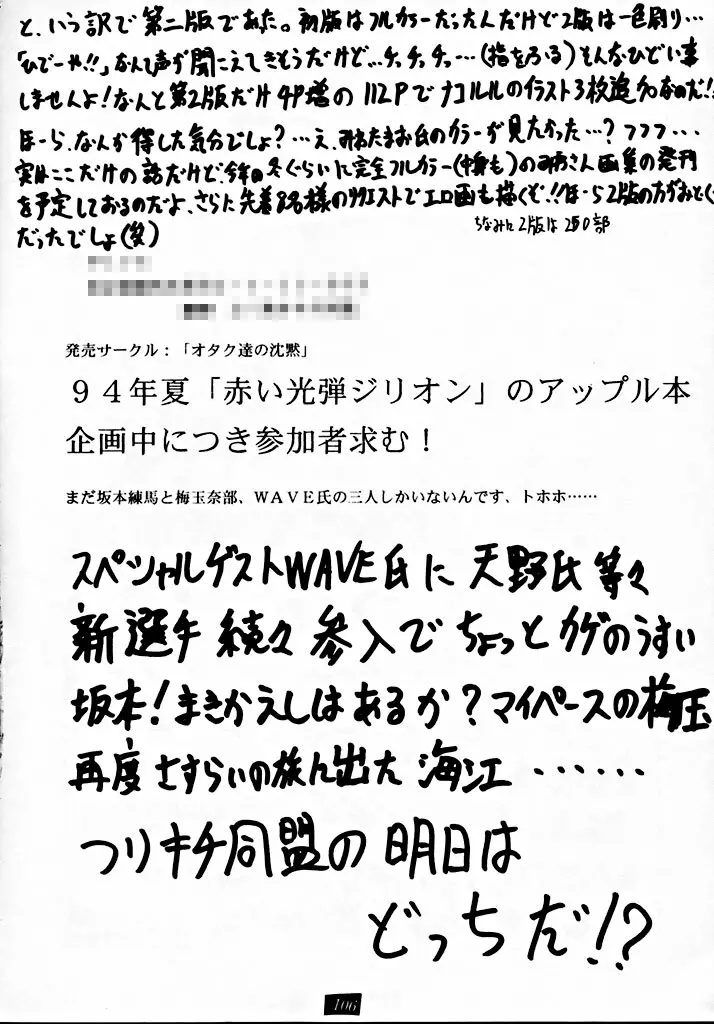 と、いう訳で第二版であった。初版はフルカラーだったんだけど2版は一色刷り…
「ひでーや!!」なんて声が聞こえてきそうだけど…チ、チ、チ、…(指をふる)そんなひどい事
しませんよ!なんと第2版だけ4P増の112Pでナコルルのイラスト3枚追加なのだ!!
ほーら、なんか得した気分でしょ?…え、みねたまお氏のカラーが見たかった…?フフフ…
実はここだけの話だけど、今年の冬ぐらいに完全フルカラー(中身も)の さん画集の発刊
を予定しておるのだよ、さらに先着 名様のリクエストでエロ画も描くぞ!!ほーら2版の方がおとく
だったでしょ(笑)
ちなみに2版は250部
発売サークル:「オタク達の沈黙」
94年夏「赤い光弾ジリオン」のアップル本
企画中につき参加者求む!
まだ坂本練馬と梅玉奈部、WAVE氏の三人しかいないんです、トホホ……
スペシャルゲストWAVE氏に天野氏等々
新選手続々参入でちょっとカゲのうすい
坂本!まきかえしはあるか?マイペースの梅玉
再度さすらいの旅に出た海江……
つりキチ同盟の明日は
どっちだ!?
106